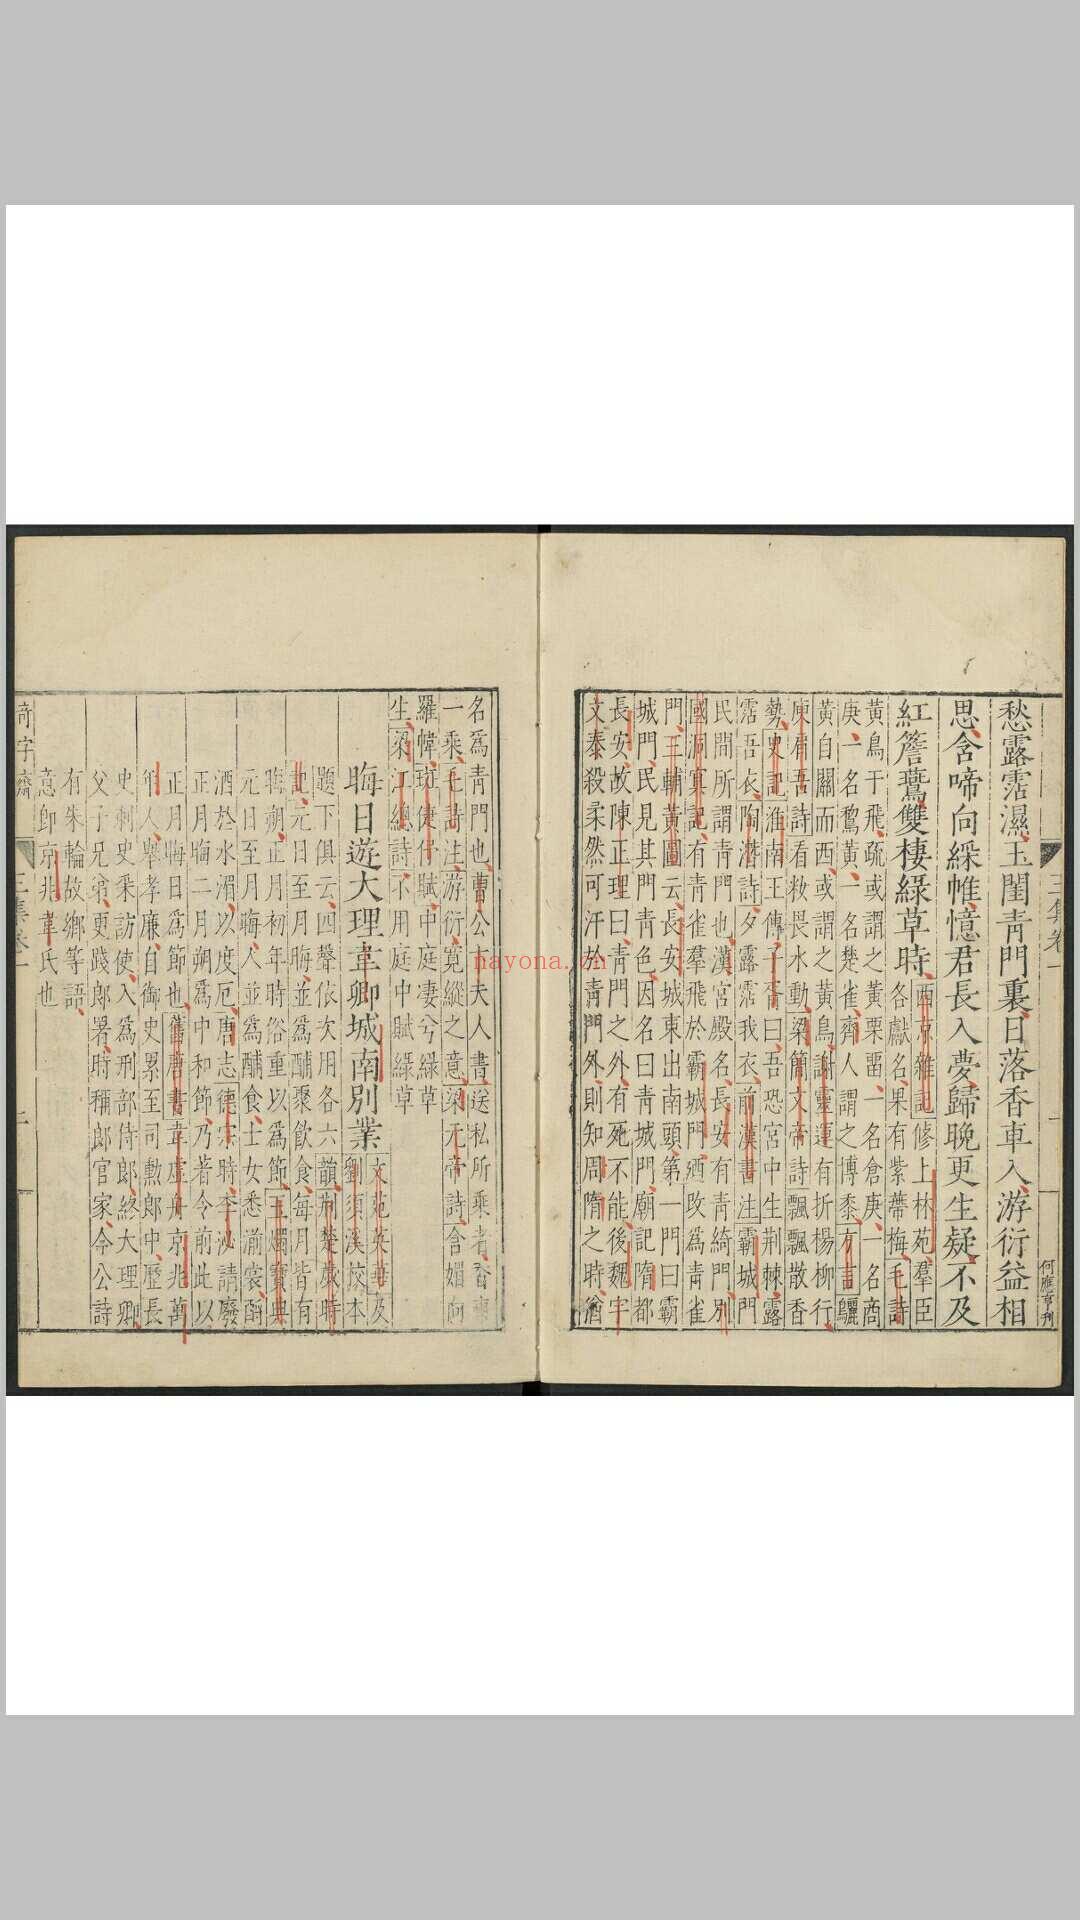 愁露霑濕玉閨青門裏日落香車入游衍益相
思含啼向綵帷憶君長入夢歸晚更生疑不及
紅簷鷰雙棲綠草時
西京雜記修上林苑羣臣
各獻名果有紫蔕梅毛詩
黃鳥于飛疏或謂之黃栗畱一名倉庚一名商
庚一名鵹黃一名楚雀齊人謂之博黍方言鸝
黃自關而西或謂之黃鳥謝靈運有折楊柳行
庾肩吾詩看妝畏水動梁簡文帝詩飄飄散香
勢史記淮南王傳子胥曰吾恐宮中生荆棘露
霑吾衣陶潛詩夕露霑我衣前漢書注霸城門
民間所謂青門也漢宮殿名長安有青綺門別
國洞冥記有青雀羣飛於霸城門廼改為青雀
門三輔黃圖云長安城東出南頭第一門曰霸
城門民見其門青色因名曰青城門廟記隋都
長安故陳正理曰青門之外有死不能後魏宇
文泰殺柔然可汗於青門外則知周隋之時猶
三集卷一
一
何應亨刊
名爲青門也曹公卞夫人書送私所乘香車
一乘毛詩注游衍寛縱之意梁元帝詩含媚向
羅幃班倢伃賦中庭凄兮綠草
生梁江總詩不用庭中賦綠草
晦日遊大理韋卿城南別業
文苑英華及
劉須溪校本
題下俱云四聲依次用各六韻荆楚歲時
記元日至月晦並爲酺聚飲食每月皆有
晦朔正月初年時俗重以爲節玉燭寶典
元日至月晦人並爲酺食士女悉湔裳酹
酒於水湄以度厄唐志德宗時李泌請廢
正月晦二月朔爲中和節乃著令前此以
正月晦日爲節也舊唐書韋虛舟京兆萬
年人舉孝廉自御史累至司勳郎中歷長
史刺史采訪使入爲刑部侍郎終大理卿
父子兄弟更踐郎署時稱郎官家今公詩
有朱輪故鄉等語
意即京兆韋氏也
奇字齋
三集卷一
二
nayona.cn